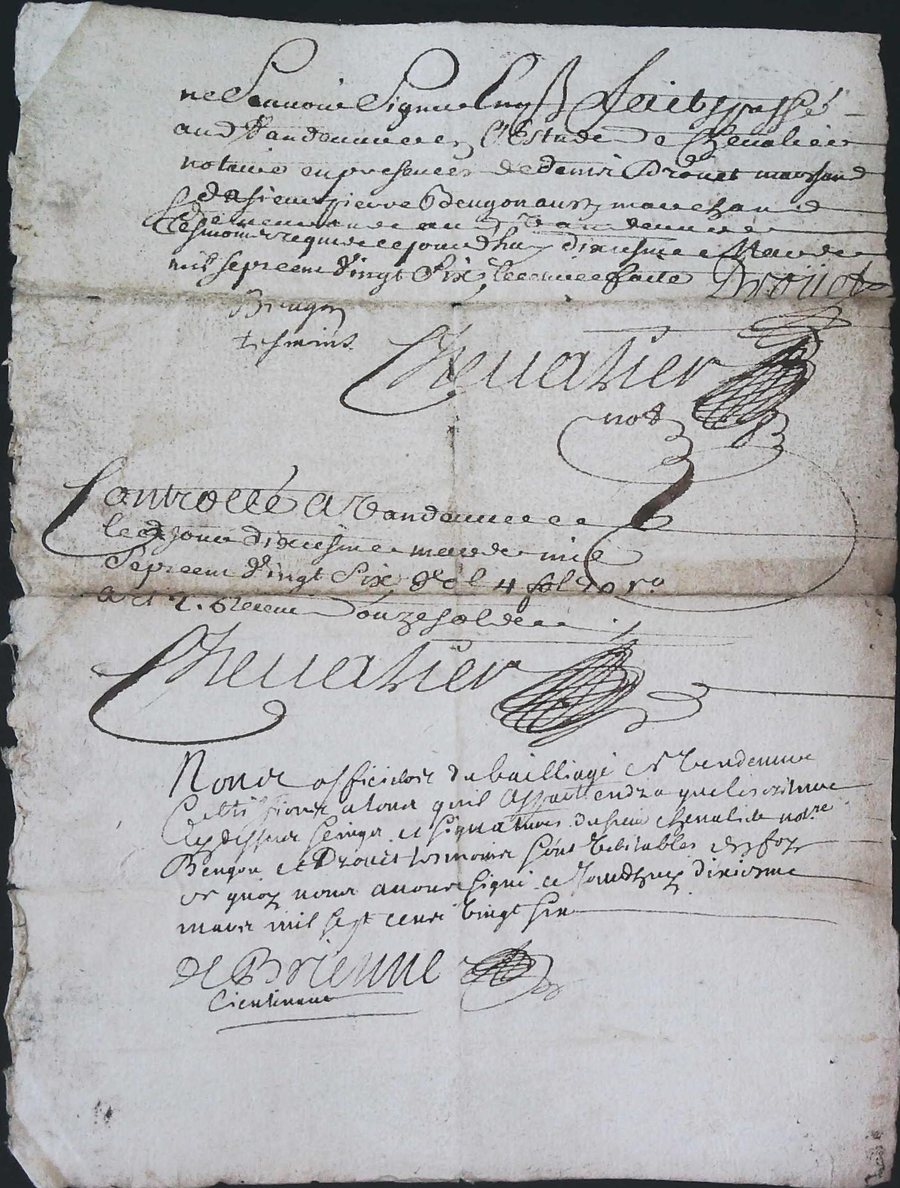 ne Scauoir Signer Enq.s Fait & passé
aud Vandeuure en L'Estude de Cheualier
notaire en presences de denis Drouet marchand
de sieur pierre Bengon aussy marchand
demeurante au Vandeuure
tesmoins requis ce jourdhuy dixiesme Mars de
mil sept cent Vingt Six Lecture faite Drouot
Bengon
tesmins
Cheualier
not.e
Controllé a Vandeuure ce
led jour dixiesme mars de mil
Sept cent Vingt Six vol 4 fol 20 r.o
art 2. Receu douze sols
Cheualier
Nous officiers du bailliage de Vendeuure
Certiffions a tous quil appartiendra que les escriture
Cy dessus seings et signatures du sieur cheualier notre
Bengon et Drouet tesmoins sont veritables en foy
de quoy nous auons signé ce Jourdhuy dixiesme
mars mil sept cent vingt six
de Brienne
Lieutenant